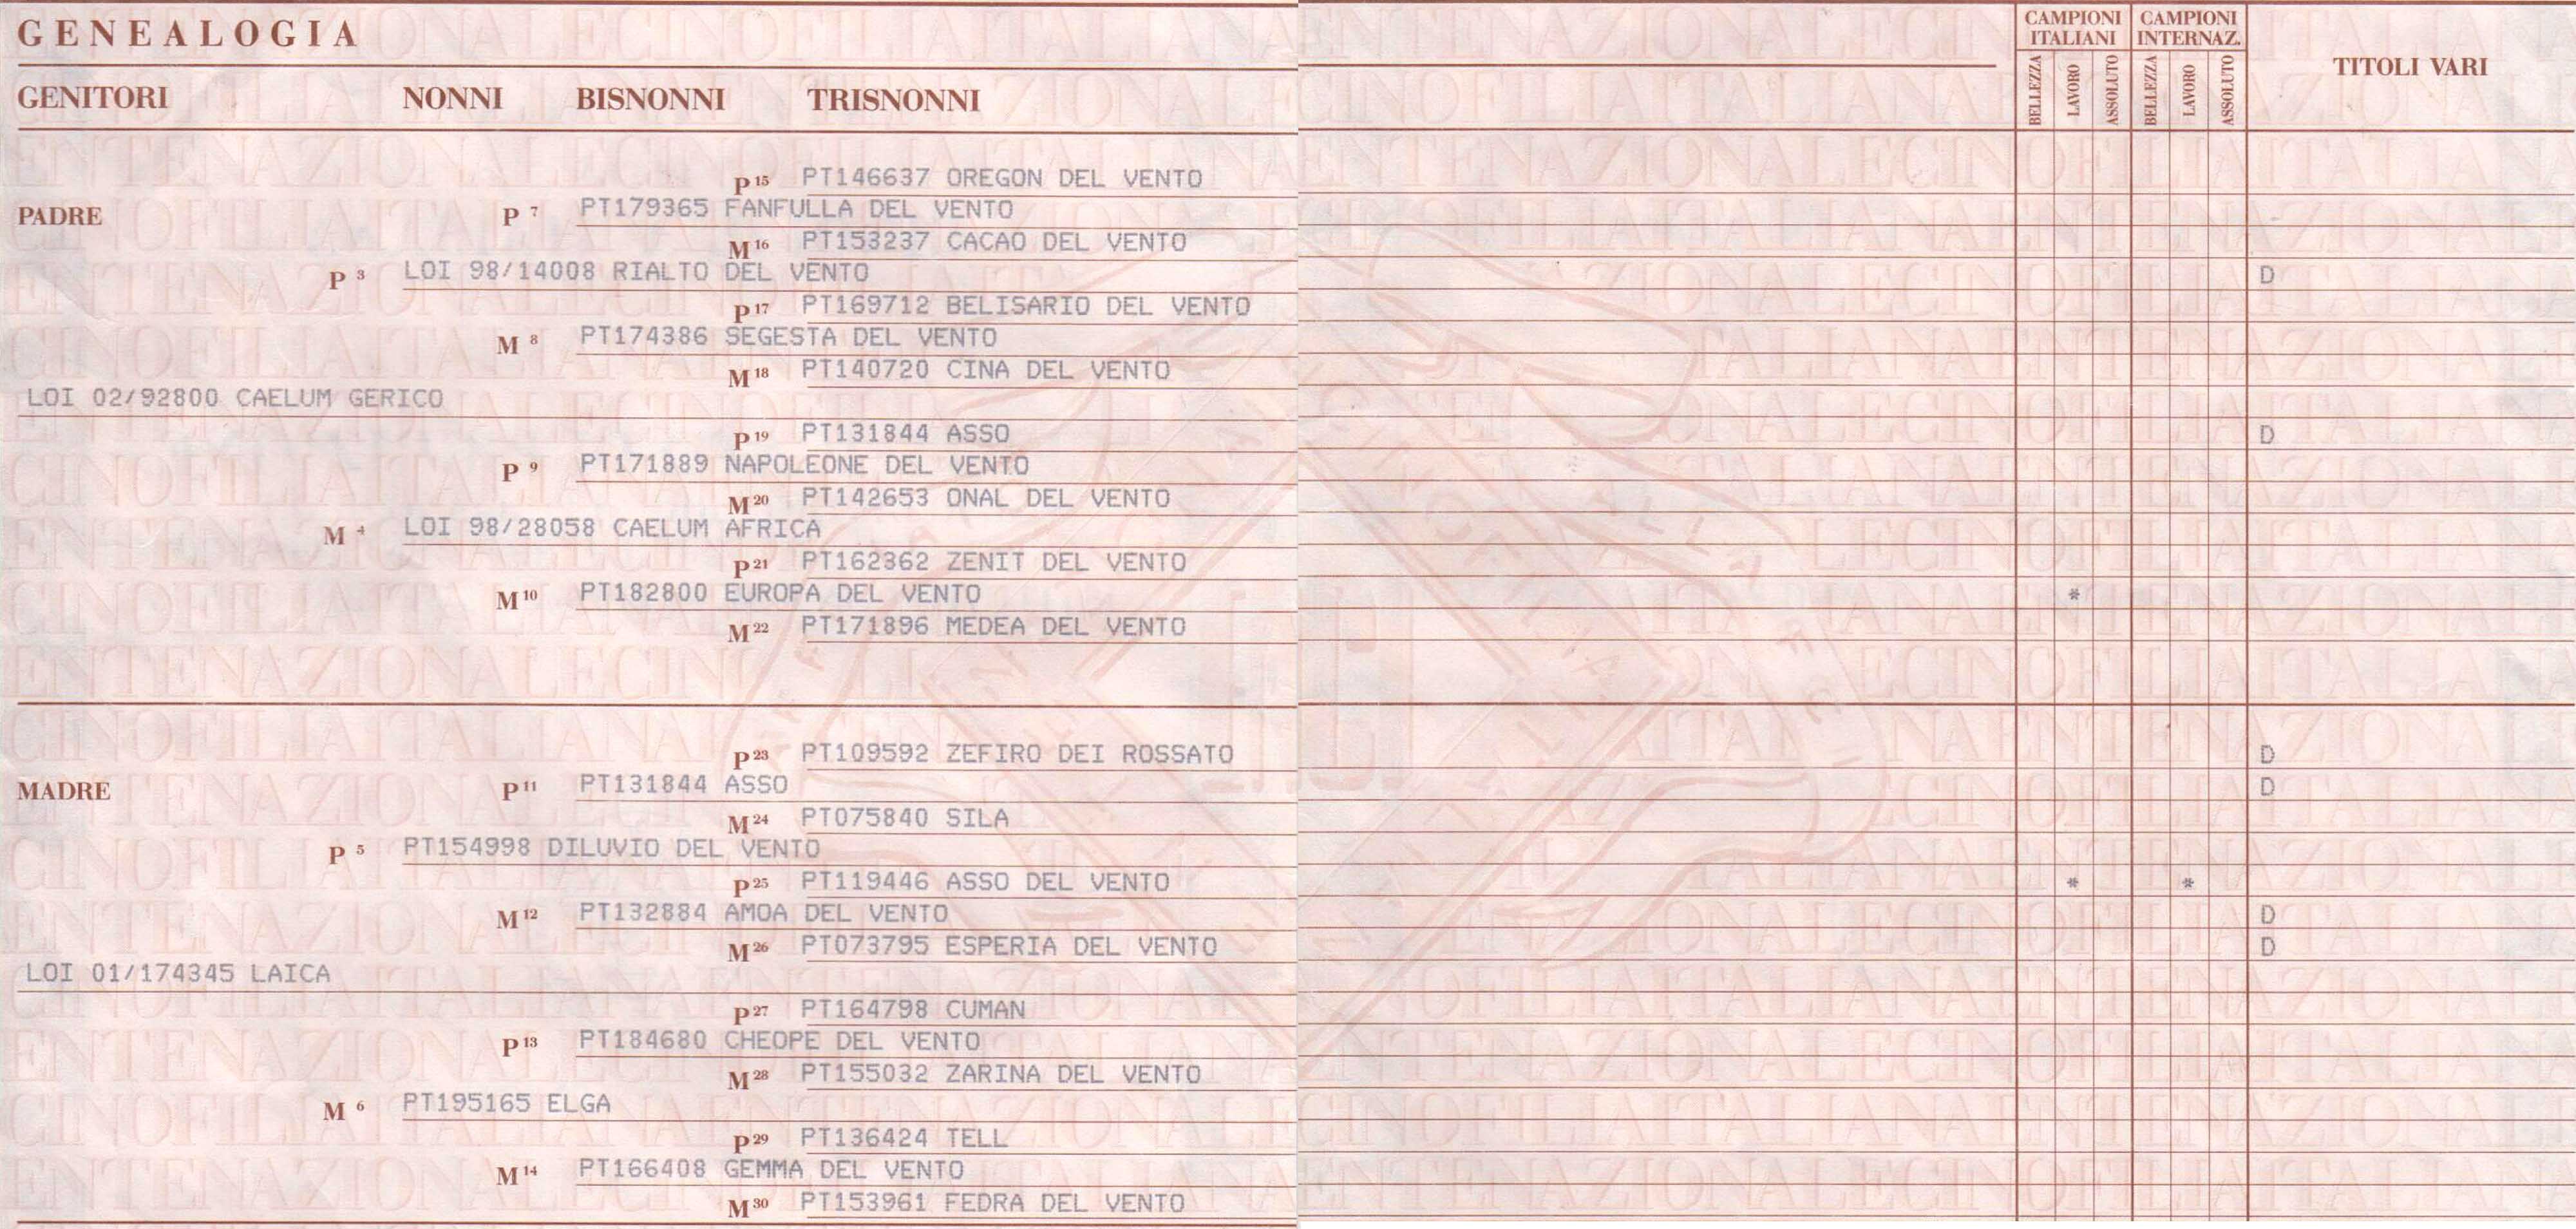 GENEALOGIA
CAMPIONI ITALIANI
CAMPIONI INTERNAZ.
TITOLI VARI
BELLEZZA LAVORO ASSOLUTO BELLEZZA LAVORO ASSOLUTO
GENITORI NONNI BISNONNI TRISNONNI
P 15 PT146637 OREGON DEL VENTO
PADRE P 7 PT179365 FANFULLA DEL VENTO
M 16 PT153237 CACAO DEL VENTO
P 3 LOI 98/14008 RIALTO DEL VENTO D
P 17 PT169712 BELISARIO DEL VENTO
M 8 PT174386 SEGESTA DEL VENTO
M 18 PT140720 CINA DEL VENTO
LOI 02/92800 CAELUM GERICO
P 19 PT131844 ASSO D
P 9 PT171889 NAPOLEONE DEL VENTO
M 20 PT142653 ONAL DEL VENTO
M 4 LOI 98/28058 CAELUM AFRICA
P 21 PT162362 ZENIT DEL VENTO
M 10 PT182800 EUROPA DEL VENTO *
M 22 PT171896 MEDEA DEL VENTO
P 23 PT109592 ZEFIRO DEI ROSSATO D
MADRE P 11 PT131844 ASSO D
M 24 PT075840 SILA
P 5 PT154998 DILUVIO DEL VENTO
P 25 PT119446 ASSO DEL VENTO * *
M 12 PT132884 AMOA DEL VENTO D
M 26 PT073795 ESPERIA DEL VENTO D
LOI 01/174345 LAICA
P 27 PT164798 CUMAN
P 13 PT184680 CHEOPE DEL VENTO
M 28 PT155032 ZARINA DEL VENTO
M 6 PT195165 ELGA
P 29 PT136424 TELL
M 14 PT166408 GEMMA DEL VENTO
M 30 PT153961 FEDRA DEL VENTO